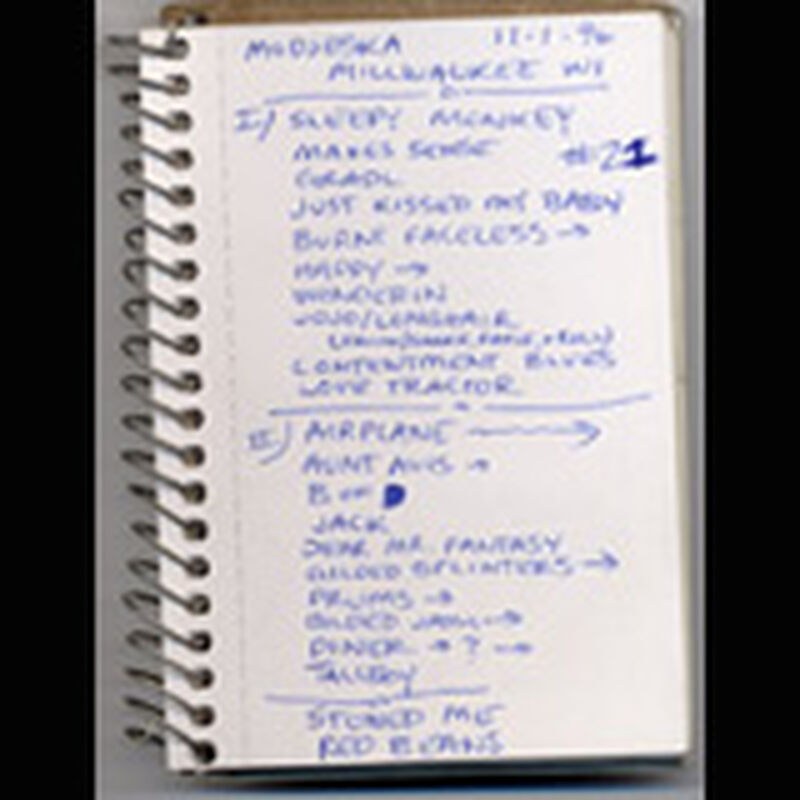 MODJESKA 11-1-96
MILLWAUKEE WI
I) SLEEPY MONKEY
MAKES SENSE #21
GRADL
JUST KISSED MY BABY
BURNT FACELESS →
HAPPY →
WONDERIN
JOJO/LONGHAIR
CONTENTMENT BLUES
LOVE TRACTOR
II) AIRPLANE →
AUNT AVIS →
B OF D
JACK
DEAR MR. FANTASY
GILDED SPLINTERS →
DRUMS →
GILDED JAM →
DINER → ? →
TALLBOY
STONED ME
RED BEANS